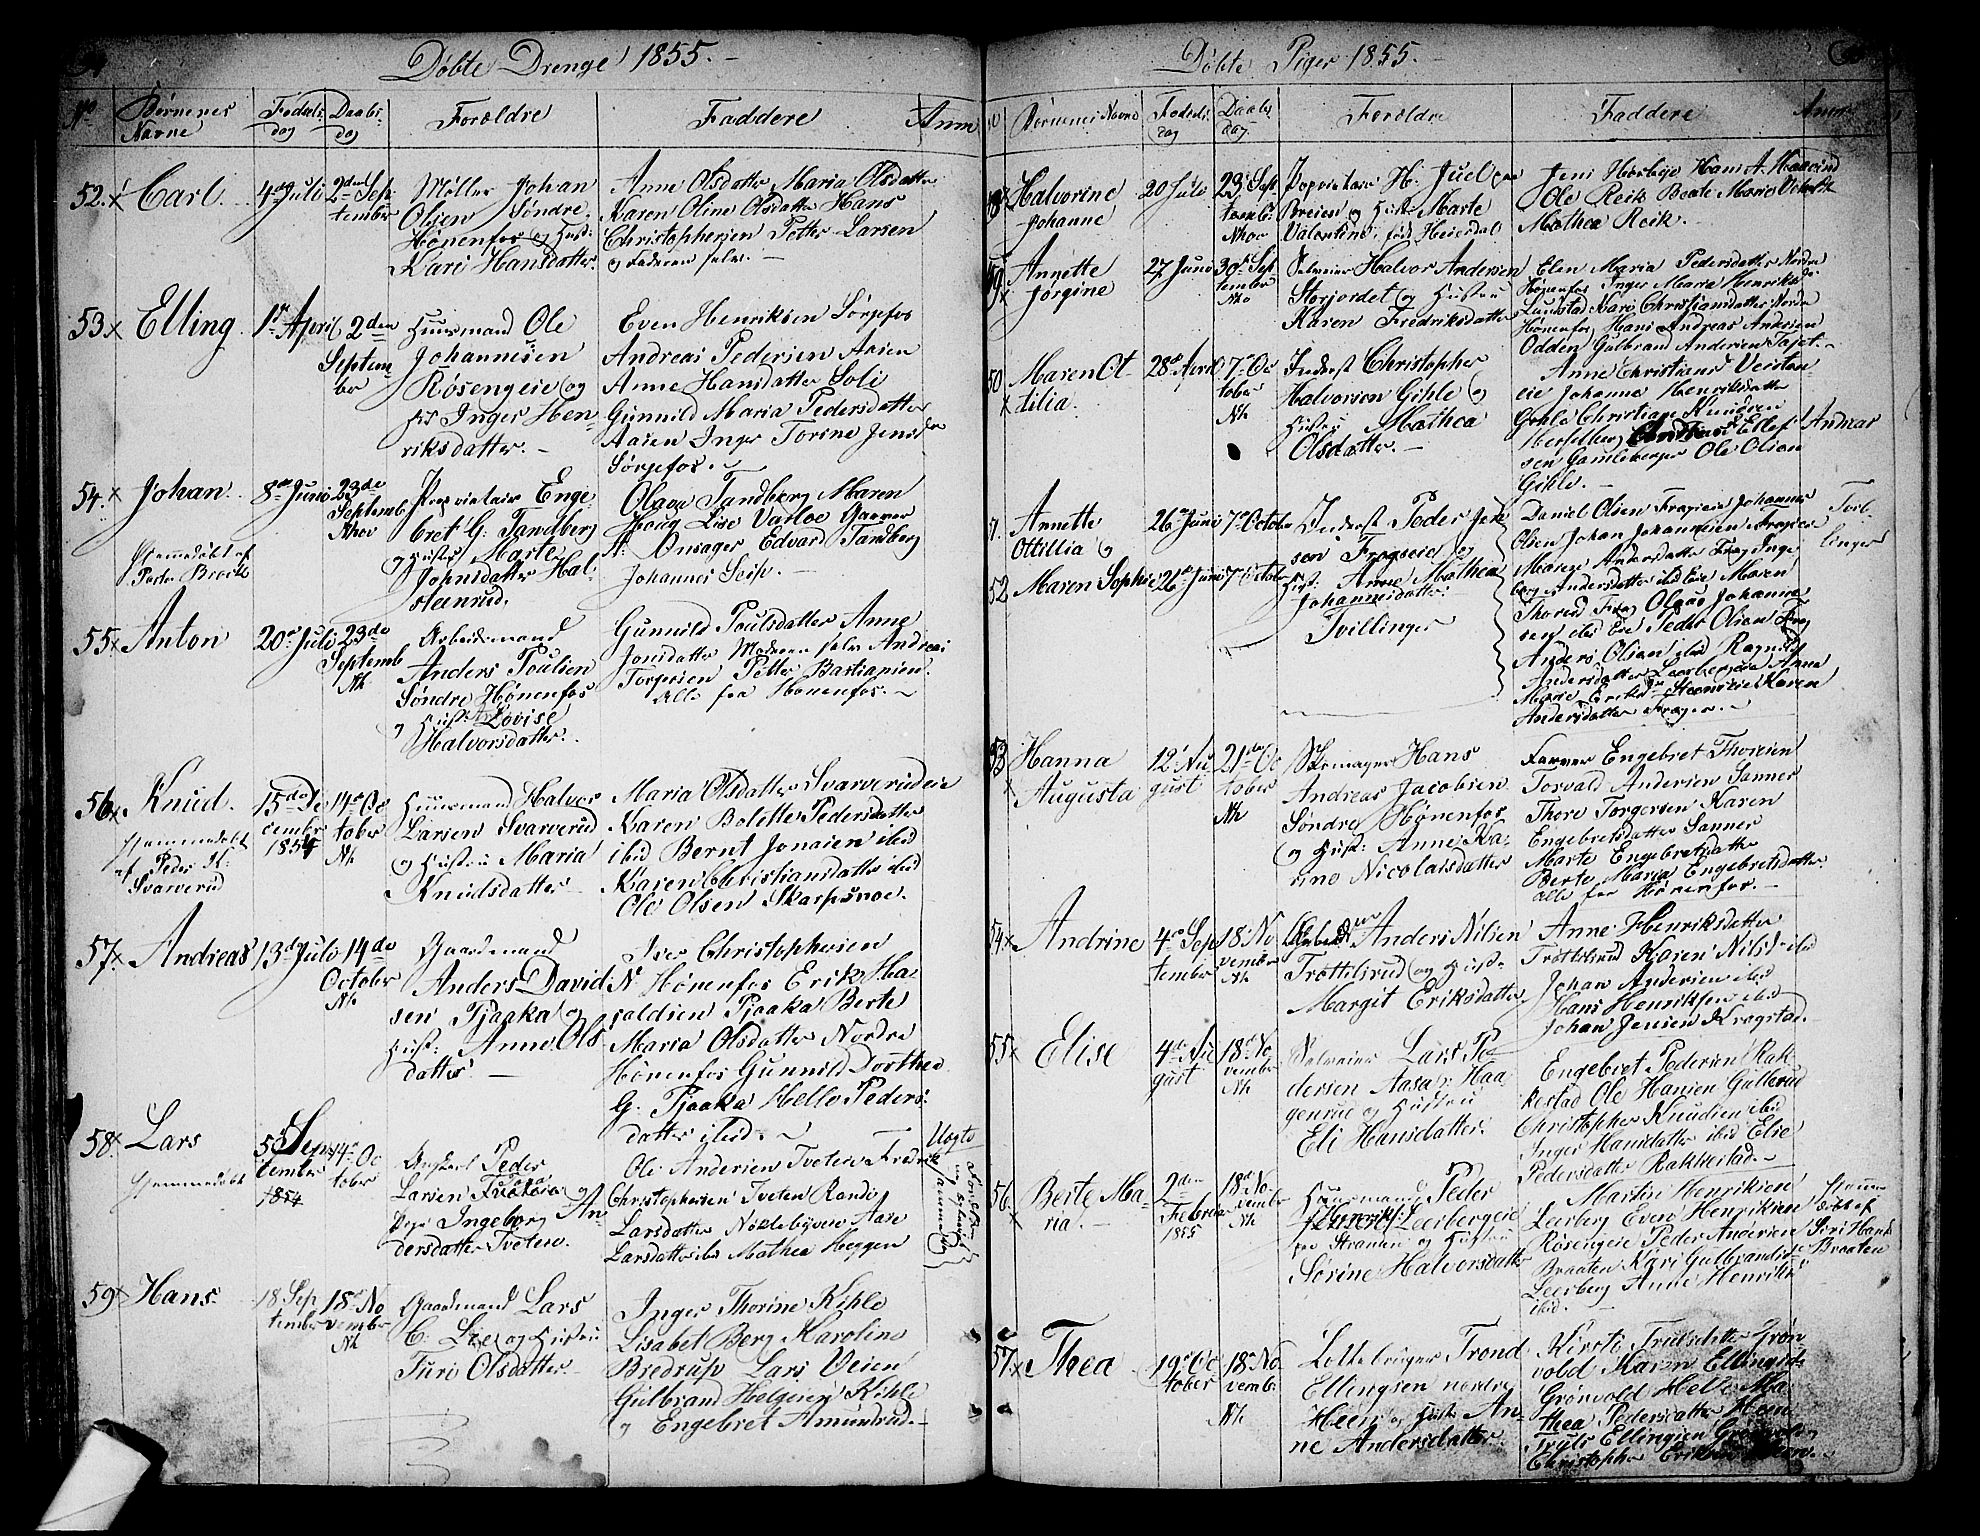 Døbte Drenge 1855.
No Børnenes Navne Fødsels dag Daabs dag Forældre Faddere Anm
52. Carl. 4de Juli 2den Sep
tember
Møller Johan
Olsen Søndre
Hønenfos og Hust:
Kari Hansdatter.
Anne Olsdatter Maria Olsdatter
Karen Oline Olsdatter Hans
Christophersen Petter Larsen
og Faderen selv.
53 Elling. 1ste April 2den
Septem
ber
Huusmand Ole
Johannesen
Røsengeie og
Inger Hen
riksdatter.
Even Henriksen Sørpefos
Andreas Pedersen Aasen
Anne Hansdatter Soli
Gunnild Maria Pedersdatter
Aasen Inger Torine Jens
Sørpefos.
54. Johan. 8de Juni 23de
Septemb
Hjemmedøbt af
Peder Bræk
Proprietair Enge
bret G. Tandberg
og Hustru Marte
Johnsdatter Hal
steinrud.
Olava Tandberg Maren
Houg Lise Garver
A: Onsager Edvard Tandberg
Johannes
55 Anton 20de Juli 23de
Septemb
Nh
Arbeidsmand
Anders Poulsen
Søndre Hønenfos
og Hust: Lovise
Halvorsdatter.
Gunnild Poulsdatter Anne
Jonsdatter Moderen selv Andreas
Torgersen Petter Bastiansen.
alle fra Hønenfos.
56 Knud. 15de De
cember
1854
14de Oc
tober
Nh
Hjemmedøbt
af Peder H:
Svarverud
Huusmand Halvor
Larsen Svarverud
og Hustru Maria
Knudsdatter
Maria Olsdatter Svarverudeie
Karen Bolette Pedersdatter
ibid Bernt Jonsen ibid
Karen Christiansdatter ibid
Ole Olsen Skarpsnoe.
57. Andreas 13de Juli 14de
October
Nh
Gaardmand
Anders David
sen Pjaaka og
Hust: Anne Ols
datter
Iver Christophersen
N Hønenfos Erik Ha
galdsen Pjaaka Berte
Maria Olsdatter Nordre
Hønenfos Gunnild Dorthea
G. Pjaaka Helle Peders
datter ibid.
58. Lars 5 Sep
tember
1854
14de Oc
tober
Hjemmedøbt
Ungkarl Peder
Larsen og
Pige Ingeborg An
dersdatter Tveten.
Ole Andersen Tveten Fredrik
Christophersen Tveten Randi
Larsdatter Aase
Larsdatter ibid Mathea Heggen
Uægte
59 Hans. 18 Sep
tember
18de No
vember
Nh
Gaardmand Lars
C. Lie og Hustru
Turi Olsdatter.
Inger Thorine Kihle
Lisabet Berg Karoline
Bredrup Lars Veien
Gulbrand Helgesen Kihle
og Engebret Amundrud.
Døbte Piger 1855.
Børnenes Navne Fødsels dag Daabs dag Forældre Faddere Anm
Halvorine
Johanne
20 Juli 23de Sep
temb:
Proprietair H. Juel
Breien og Hust: Marte
Valentine, født Heierdal
Jens Hans A.
Ole Reik Beate Marie
Mathea Reik.
49 Annette
Jørgine
27 Juni 30te Sep
tember
Selveier Halvor Andersen
Storjordet og Hustru
Karen Fredriksdatter
Elen Maria Pedersdatter Nordre
Hønenfos Inger Marie Henriks
Lundstad Kari Christiansdatter Nordre
Hønenfos Hans Andreas Andersen
Odden Gulbrand Andersen
50 Maren Ot
tilia.
28de April 7de Oc
tober
Nh
Inderst Christopher
Halvorsen Gihle og
Hustru Mathea
Olsdatter.
Anne Christians
eie Johanna Henriksdatter
Gihle Christian Knudsen
Ellef
sen Gamleberget Ole Olsen
Gihle.
Andreas
Annette
Ottillia og
26de Juni 7de October
52 Maren Sophie 26de Juni 7 October
Inderst Peder Jen
sen Frøgseie og
Hust. Anne Mathea
Johannesdatter.
Tvillinger
Daniel Olsen Frøgseie Johannes
Olsen Johan Johannesen Frøgseie
Maren Andersdatter Frøg Inge
borg Andersdatter ibid Eie Maren
Frøg Olaus Johanne
sen ibid Eie Peder Olsen Frøg
Anders Olsen ibid Ragnild
Andersdatter Leerbergeie Anne
Marie Eriks Karen
Andersdatter Frøgeie.
Tvil
linger
53 Hanna
Augusta
12te Au
gust
21de Oc
tober
Nh
Skomager Hans
Andreas Jacobsen
Søndre Hønenfos
og Hust: Anne Ka
rine Nicolaisdatter
Farver Engebret Thoresen
Torvald Andersen Sanner
Thore Torgersen Karen
Engebretsdatter Sanner
Marte Engebretsdatter
Berte Maria Engebretsdatter
alle fra Hønenfos.
54 Andrine 4de Sep
tember
18de No
vember
Nh
Anders Nilsen
Trøttelsrud og Hust.
Margit Eriksdatter
Anne Henriksdatter
Trøttelsrud Karen Nilsd. ibid
Johan Andersen ibid
Hans Henriksen ibid
Johan Jensen Kragstad.
55 Elise 4de Au
gust
18de No
vember
Nh
Selveier Lars Pe
dersen Aasa Haa
genrud og Hustru
Eli Hansdatter.
Engebret Pedersen Rak
kestad Ole Hansen Gullerud
Christopher Knudsen ibid
Inger Hansdatter ibid Elie
Pedersdatter Rakkestad.
56. Berte Ma
ria.
2den
Februar
1855
18de No
vember
Nh
Huusmand Peder
Leerbergeie
Stranden og Hustru
Sørine Halvorsdatter
Martin Henriksen
Leerberg Even Henriksen
Røsengeie Peder Andersen
Braaten Kari Gulbrandsd.
Leerberg Anne Henriks
ibid.
Hjemme
døbt af
Siri Hans
Braaten
57 Thea 19de Oc
tober
18de No
vemb:
Nh
Trond
Ellingsen nordre
Heen og Hustr An
ne Andersdatter.
Kirsti Trulsdatter Grøn
vold Maren Ellingsd
Grønvold Helle Ma
thea Pedersdatter Heen
Truls Ellingsen Grønvold
Christopher